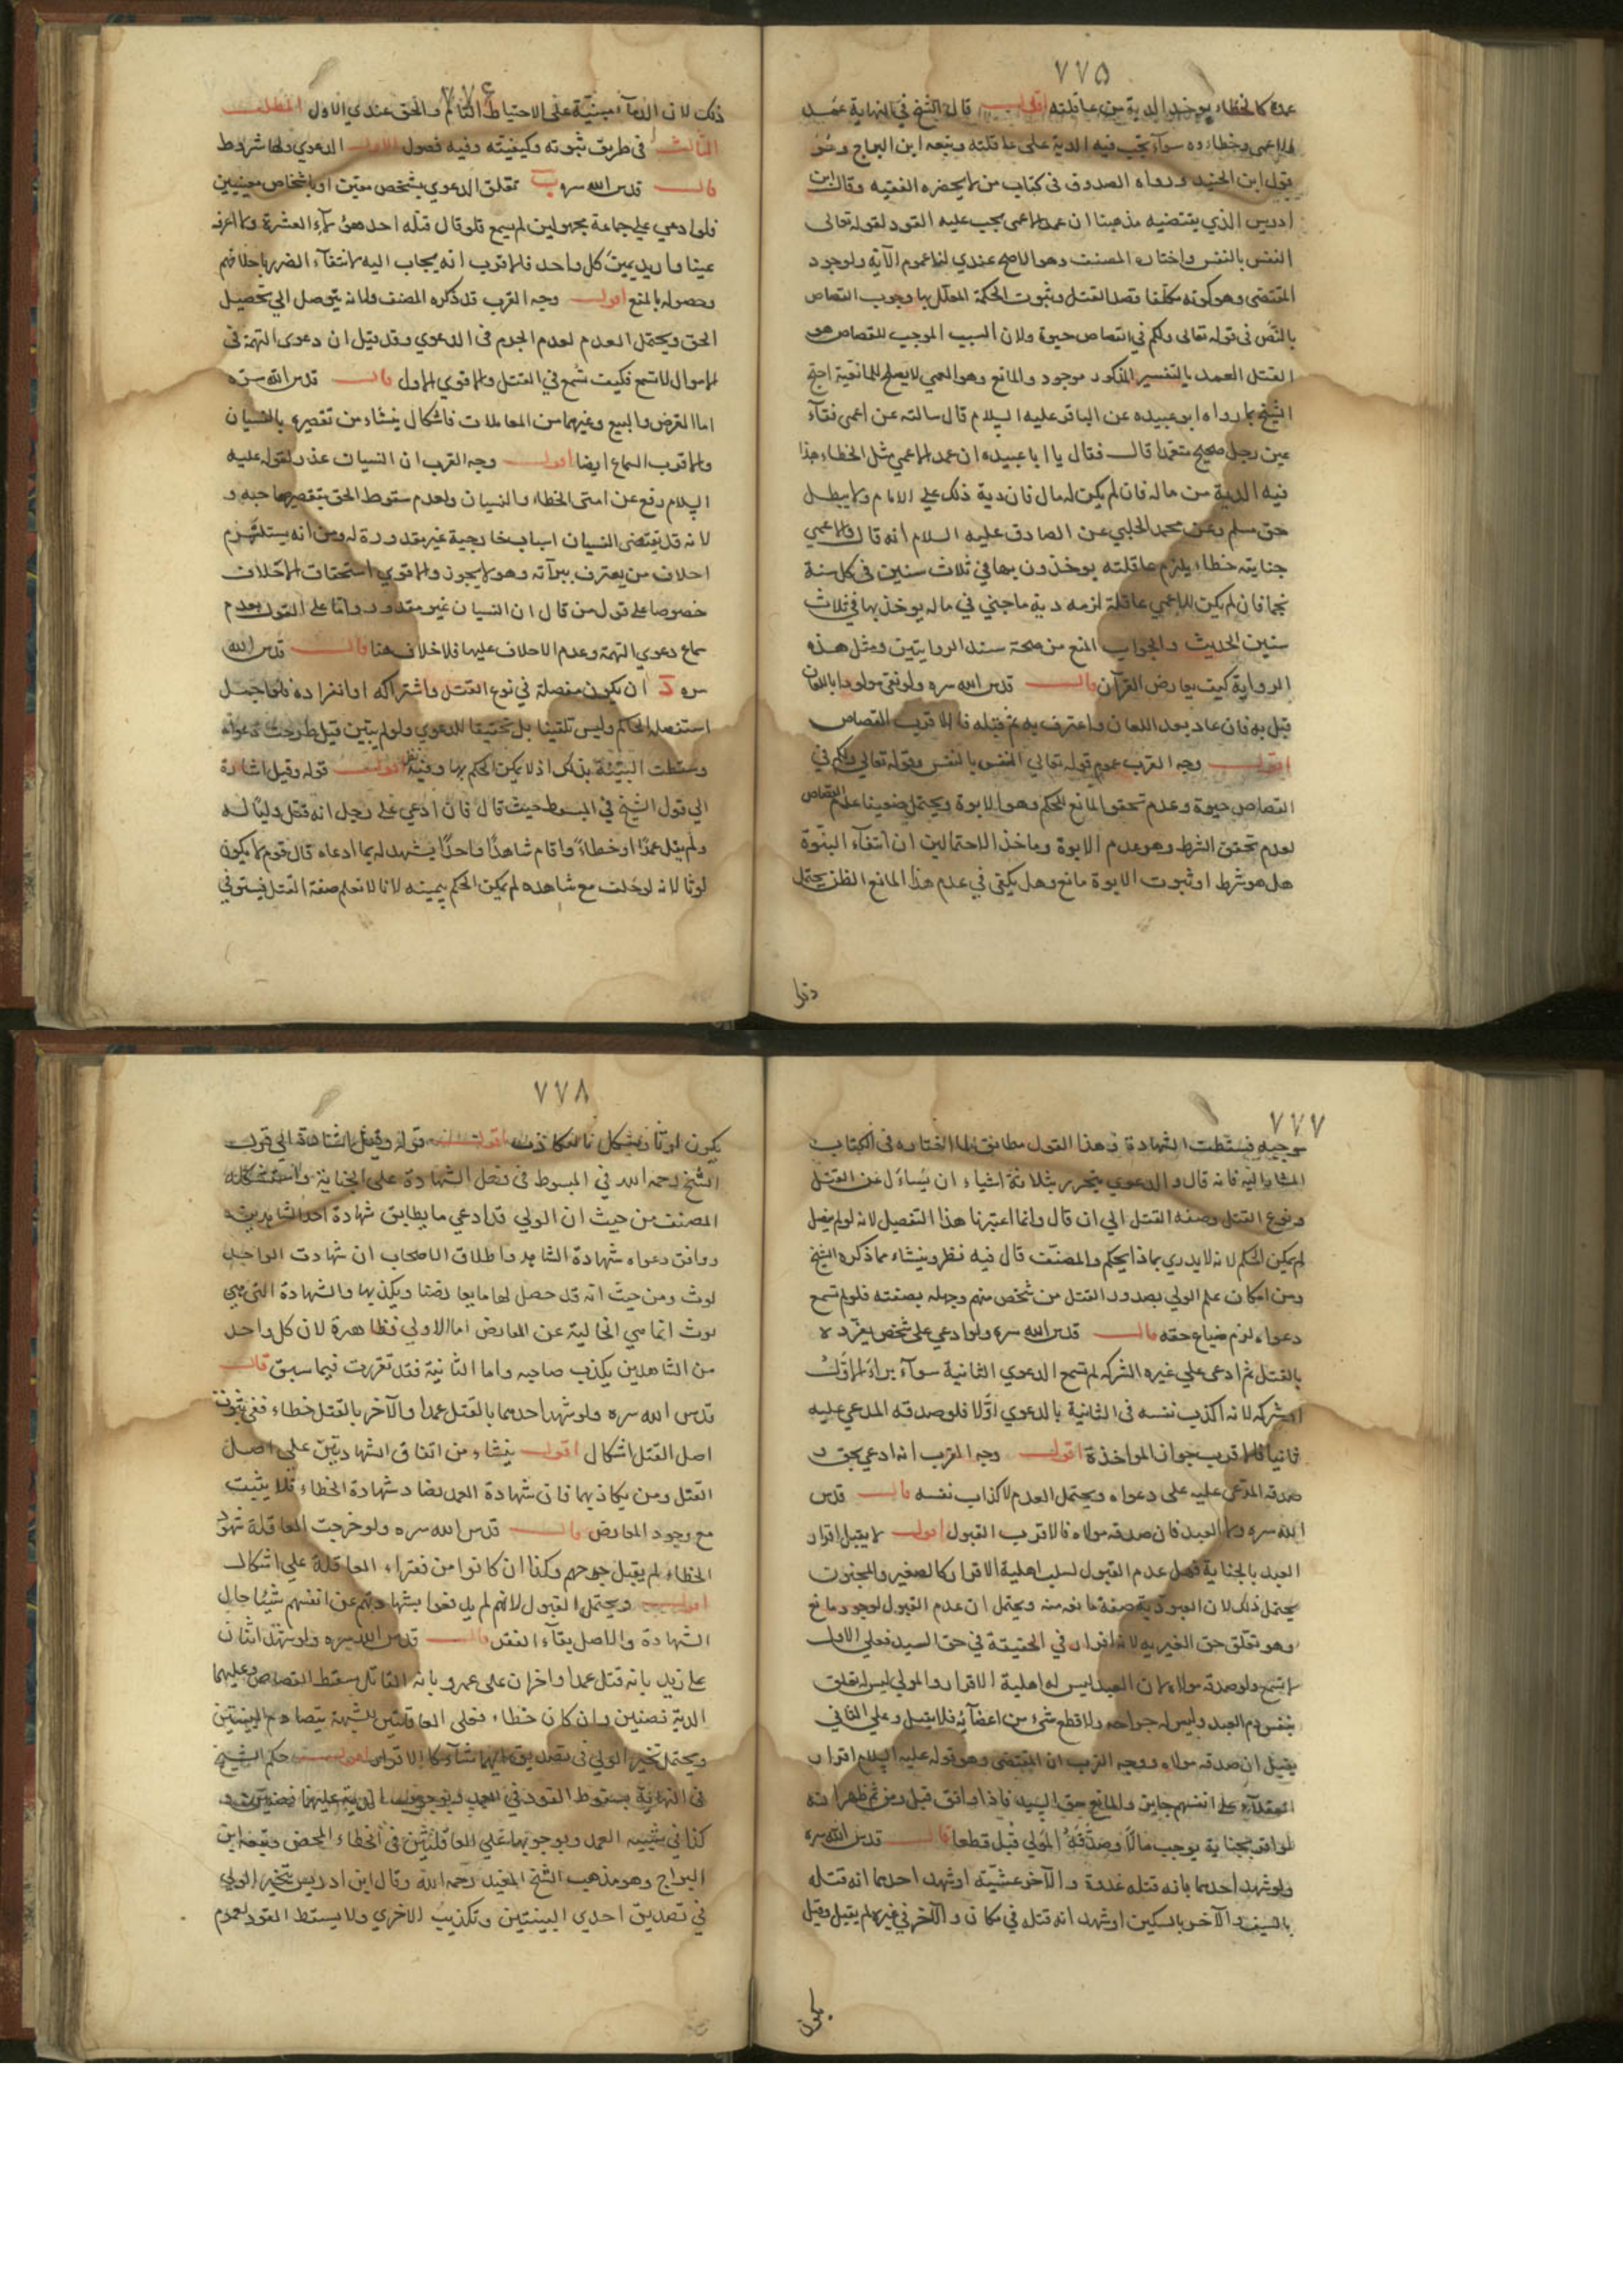 ٧٧٥
عمده كالخطاء يوخذ الدية من عاقلته اقول قال الشيخ في النهاية عمد
الاعمى وخطاءه سوآء تجب فيه الدية على عاقلته وتبعه ابن البراج وهو
قول ابن الجنيد ورواه الصدوق فى كتاب من لا يحضره الفقيه وقال ابن
ادريس الذي يقتضيه مذهبنا ان عمد الاعمى يجب عليه القود لقوله تعالى
النفس بالنفس واختاره المصنف وهو الاصح عندي لنا عموم الآية ولوجود
المقتضى وهو كونه مكلفا قصد القتل وثبوت الحكمة المعلل بها وجوب القصاص
بالنص فى قوله تعالى ولكم في القصاص حيوة ولان السبب الموجب للقصاص هو
القتل العمد بالتفسير المذكور موجود والمانع وهو العمي لا يصلح للمانعية احتج
الشيخ بما رواه ابو عبيده عن الباقر عليه السلام قال سالته عن اعمى فقآء
عين رجل صحيح متعمدا قال فقال يا ابا عبيده ان عمد الاعمي مثل الخطاء هذا
فيه الدية من ماله فان لم يكن له مال فان دية ذلك علي الامام ولا يبطل
حق مسلم وعن محمد الحلبي عن الصادق عليه السلام انه قال والاعمي
جنايته خطاء يلزم عاقلته يوخذون بها في ثلاث سنين فى كل سنة
نجما فان لم يكن للاعمي عاقلة لزمه دية ماجني في ماله يوخذ بها في ثلاث
سنين الحديث والجواب المنع من صحة سند الروايتين ومثل هذه
الرواية كيف يعارض القرآن قال قدس الله سره ولو نفى مولودا باللعان
قبل به فان عاد بعد اللعان واعترف به ثم قتله فالاقرب القصاص
اقول وجه القرب عموم قوله تعالي النفس بالنفس وقوله تعالي ولكم في
القصاص حيوة وعدم تحقق المانع للحكم وهو الابوة ويحتمل ضعيفا عدم القصاص
لعدم تحقق الشرط وهو عدم الابوة وماخذ الاحتمالين ان انتفآء البنوة
هل هو شرط او ثبوت الابوة مانع وهل يكفى في عدم هذا المانع الظن يحتمل
٧٧٦
ذلك لان الدمآء مبنية على الاحتياط التام والحق عندي الاول المطلب
الثالث فى طريق ثبوته وكيفيته وفيه فصول الاول الدعوي ولها شروط
قال قدس الله سره ب تعلق الدعوي بشخص معين او باشخاص معينين
فلو ادعي علي جماعة مجهولين لم يسمع فلو قال قتله احد هؤلآء العشرة ولا اعرفه
عينا واريد يمين كل واحد فالاقرب انه يجاب اليه لانتفآء الضرر باحلافهم
وحصوله بالمنع اقول وجه القرب قد ذكره المصنف ولانه يتوصل الي تحصيل
الحق ويحتمل العدم لعدم الجزم فى الدعوي وقد قيل ان دعوى التهمة فى
الاموال لا تسمع فكيف تسمع في القتل والاقوي الاول قال قدس الله سره
اما القرض والبيع وغيرهما من المعاملات فاشكال ينشاء من تقصيره بالنسيان
والاقرب السماع ايضا اقول وجه القرب ان النسيان عذر لقوله عليه
السلام رفع عن امتى الخطاء والنسيان ولعدم سقوط الحق بتقصير صاحبه و
لانه قد يقتضى النسيان اسباب خارجية غير مقدورة له ومن انه يستلزم
احلاف من يعترف ببرآته وهو لا يجوز والاقوي استحقاق الاحلاف
خصوصا علي قول من قال ان النسيان غير مقدور واما على القول بعدم
سماع دعوي التهمة وعدم الاحلاف عليها فلا خلاف هنا قال قدس الله
سره د ان يكون مفصلة في نوع القتل واشتراكه او انفراده فلو اجمل
استفصله الحاكم وليس تلقينا بل تحقيقا للدعوي ولو لم يبين قيل طرحت دعواه
وسقطت البينة بذلك اذ لا يمكن الحكم بها وفيه نظر اقول قوله وقيل اشارة
الي قول الشيخ في المبسوط حيث قال فان ادعي على رجل انه قتل وليا له
ولم يقل عمدا او خطاء واقام شاهدا واحدا يشهد له بما ادعاه قال قوم لا يكون
لوثا لانه لو حلف مع شاهده لم يمكن الحكم بيمينه لانا لا نعلم صفة القتل فيستوفي
٧٧٧
موجبه فسقطت الشهادة وهذا القول مطابق لما اختاره فى الكتاب
المشار اليه فانه قال والدعوي يتحرر بثلاثة اشياء ان يساءل عن القتل
ونوع القتل وصفه القتل الي ان قال وانما اعتبرنا هذا التفصيل لانه لو لم يفصل
لم يمكن الحكم لانه لا يدري بماذا يحكم والمصنف قال فيه نظر وينشاء مما ذكره الشيخ
ومن امكان علم الولي بصدور القتل من شخص منهم وجهله بصفته فلو لم تسمع
دعواه لزم ضياع حقه قال قدس الله سره ولو ادعي علي شخص تفرده
بالقتل ثم ادعى علي غيره الشركة لم تسمع الدعوي الثانية سوآء براء الاول
او شركه لانه اكذب نفسه فى الثانية بالدعوي اولا فلو صدقه المدعي عليه
ثانيا فالاقرب جواز المواخذة اقول وجه القرب انه ادعي بحق و
صدقه المدعى عليه على دعواه ويحتمل العدم لاكذاب نفسه قال قدس
الله سره ولا العبد فان صدقه مولاه فالاقرب القبول اقول لا يقبل اقرار
العبد بالجناية فهل عدم القبول لسلب اهلية الاقرار كالصغير والمجنون
يحتمل ذلك لان العبودية صفة مانعه منه ويحتمل ان عدم القبول لوجود مانع
وهو تعلق حق الغير به لانه اقرار في الحقيقة في حق السيد فعلي الاول
لا يسمع ولو صدقه مولاه لان العبد ليس له اهلية الاقرار والمولي ليس له تعلق
بنفس دم العبد وليس له جراحه ولا قطع شىء من اعضآئه فلا يقبل وعلي الثاني
يقبل ان صدقه مولاه ووجه القرب ان المقتضي وهو قوله عليه السلام اقرار
العقلآء على انفسهم جايز والمانع حق السيد فاذا وافق قبل ومن ثم ظهر انه
لو اقر بجناية يوجب مالا وصدقه المولي قبل قطعا قال قدس الله سره
ولو شهد احدهما بانه قتله غدوة والآخر عشية او شهد احدهما انه قتله
بالسيف والآخر بالسكين او شهد انه قتله في مكان والآخر في غيره لم يقبل وقيل
٧٧٨
يكون لوثا ويشكل بالتكاذب اقول قوله وقيل اشارة الي قول
الشيخ رحمه الله في المبسوط فى فصل الشهادة على الجناية واستشكله
المصنف من حيث ان الولي قد ادعي ما يطابق شهادة احد الشاهدين
ووافق دعواه شهادة الشاهد واطلاق الاصحاب ان شهادت الواحد
لوث ومن حيث انه قد حصل لها ما يعارضها ويكذبها والشهادة التى هي
لوث انما هي الخالية عن المعارض اما الاولي فظاهرة لان كل واحد
من الشاهدين يكذب صاحبه واما الثانية فقد تقررت فيما سبق قال
قدس الله سره ولو شهد احدهما بالقتل عمدا والآخر بالقتل خطاء ففي ثبوت
اصل القتل اشكال اقول ينشاء من اتفاق الشهادتين علي اصل
القتل ومن تكاذبهما فان شهادة العمد يضاد شهادة الخطاء فلا يثبت
مع وجود المعارض قال قدس الله سره ولو خرجت العاقلة شهود
الخطاء لم يقبل جرحهم وكذا ان كانوا من فقراء العاقلة علي اشكال
اقول ويحتمل القبول لانهم لم يدفعوا بشهادتهم عن انفسهم شيئا حال
الشهادة والاصل بقآء الفقر قال قدس الله سره ولو شهد اثنان
علي زيد بانه قتل عمدا واخران على عمرو بانه القاتل سقط القصاص وعليهما
الدية نصفين وان كان خطاء فعلى العاقلتين لشبهة تصادم البينتين
ويحتمل تخير الولي فى تصديق ايهما شآء كالاقرار اقول حكم الشيخ
فى النهاية بسقوط القود في العمد ووجوب الدية عليهما نصفين و
كذا في شبيه العمد وبوجوبها على العاقلتين فى الخطاء المحض وتبعه ابن
البراج وهو مذهب الشيخ المفيد رحمه الله وقال ابن ادريس بتخير الولي
في تصديق احدي البينتين وتكذيب الاخري ولا يسقط القود لعموم